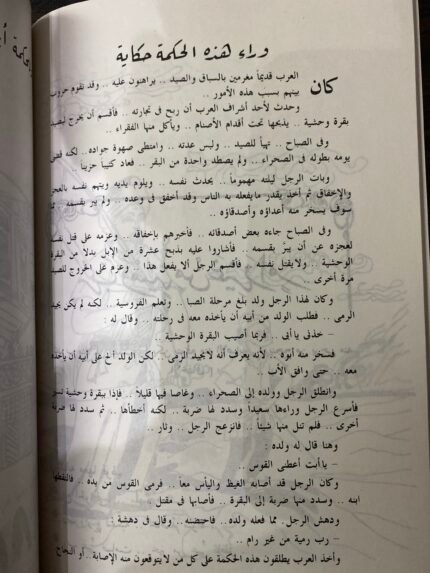 وراء هذه الحكمة حكاية
كان العرب قديماً مغرمين بالسباق والصيد .. يراهنون عليه .. وقد تقوم حروب
بينهم بسبب هذه الأمور ..
وحدث لأحد أشراف العرب أن ربح فى تجارته .. فأقسم أن يخرج ليصيد
بقرة وحشية .. يذبحها تحت أقدام الأصنام .. ويأكل منها الفقراء ..
وفى الصباح .. تهيأ للصيد .. ولبس عدته .. وامتطى صهوة جواده .. لكنه قضى
يومه بطوله فى الصحراء .. ولم يصطد واحدة من البقر .. فعاد كئيباً حزيناً ..
وبات الرجل ليلته مهموماً .. يحدث نفسه .. ويلوم يديه ويتهم نفسه بالعجز
والإخفاق ثم أخذ يقدر ما يفعله به الناس وقد أخفق فى وعده .. ولم يبر بقسمه .. مما
سوف يسخر منه أعداؤه وأصدقاؤه ..
وفى الصباح جاءه بعض أصدقائه .. فأخبرهم بإخفاقه .. وعزمه على قتل نفسه
لعجزه عن أن يبرّ بقسمه .. فأشاروا عليه بذبح عشرة من الإبل بدلا من البقرة
الوحشية .. ولا يقتل نفسه .. فأقسم الرجل ألا يفعل هذا .. وعزم على الخروج للصيد
مرة أخرى ..
وكان لهذا الرجل ولد بلغ مرحلة الصبا .. وتعلم الفروسية .. لكنه لم يكن يجيد
الرمى .. فطلب الولد من أبيه أن يأخذه معه فى رحلته .. وقال له :
– خذنى يا أبى .. فربما أصيب البقرة الوحشية ..
فسخر منه أبوه .. لأنه يعرف أنه لا يجيد الرمى .. لكن الولد ألح على أبيه أن يأخذه
معه .. حتى وافق الأب ..
وانطلق الرجل وولده إلى الصحراء .. وغاصا فيها قليلاً .. فإذا ببقرة وحشية تسير
فأسرع الرجل وراءها سعيداً وسدد لها ضربة .. لكنه أخطأها .. ثم سدد لها ضربة
أخرى .. فلم تنل منها شيئاً .. فانزعج الرجل .. وثار ..
وهنا قال له ولده :
– يا أبت أعطنى القوس ..
وكان الرجل قد أصابه الغيظ واليأس معاً .. فرمى القوس من يده .. فالتقطها
ابنه .. وسدد منها ضربة إلى البقرة .. فأصابها فى مقتل .
ودهش الرجل. مما فعله ولده .. فاحتضنه .. وقال فى دهشة :
– رب رمية من غير رام ..
وأخذ العرب يطلقون هذه الحكمة على كل من لا يتوقعون منه الإصابة .. أو النجاح